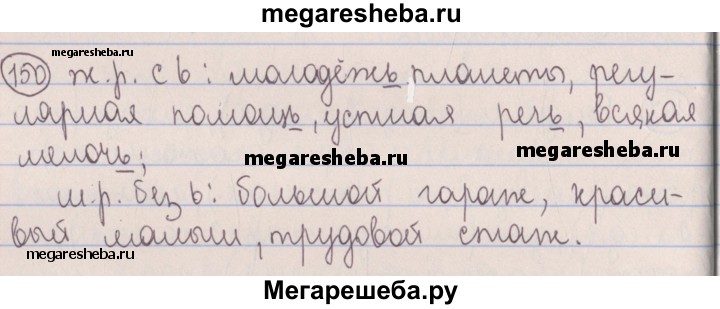 megaresheba.ru
megaresheba.ru
150 ж.р. с ь: молодёжь планеты, регу-
лярная помощь, устная речь, всякая
мелочь;
megaresheba.ru
megaresheba.ru
м.р. без ь: большой гараж, краси-
вый малыш, трудовой стаж.
megaresheba.ru
Мегарешеба.ру